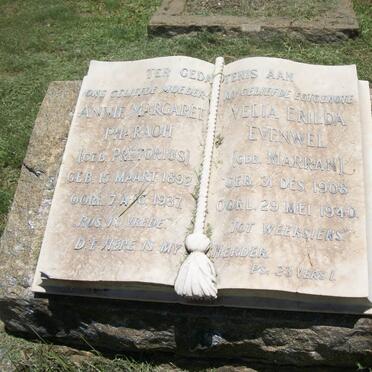 TER GEDAGTENIS AAN
ONS GELIEFDE MOEDER
ANNIE MARGARET
PHAROAH
(GEB. PRETORIUS)
GEB. 15 MAART 1892
OORL. 7 AUG. 1937
"RUS IN VREDE"
MY GELIEFDE EGGENOTE
VELIA ERILDA
EVENWEL
(GEB. MARRAN)
GEB. 31 DES. 1908
OORL. 29 MEI 1940
"TOT WEERSIENS"
DIE HERE IS MY HERDER
PS. 23 VERS 1.